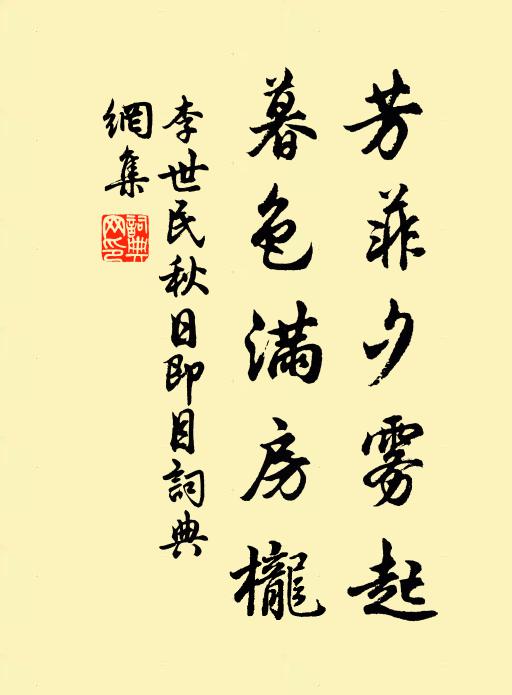 芳菲夕雾起
暮色满房櫳
李世民秋日即目詞典
網集
詞典網印